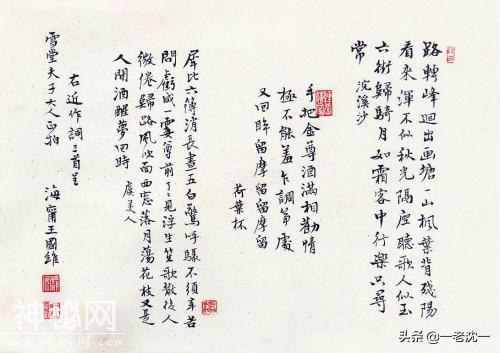 路轉峰迴出画塘一山楓葉背殘陽
看來渾不似秋光隔座聽歌人似玉
六街歸騎月如霜客中行樂只尋
常 浣溪沙
手把金尊酒滿相勸情
極不能羞乍調箏處
又回眸留摩留留摩留
荷葉杯
犀比六簿消長晝五白驚呼驟不須辛苦
問虧成一霎尊前了了見浮生笙歌散後人
微倦歸路風吹面西窓落月蕩花枝又是
人間酒醒夢回時 虞美人
右近作詞三首呈
雪堂夫子大人正拍 海甯王國維
神秘网
头条 @一老沈一